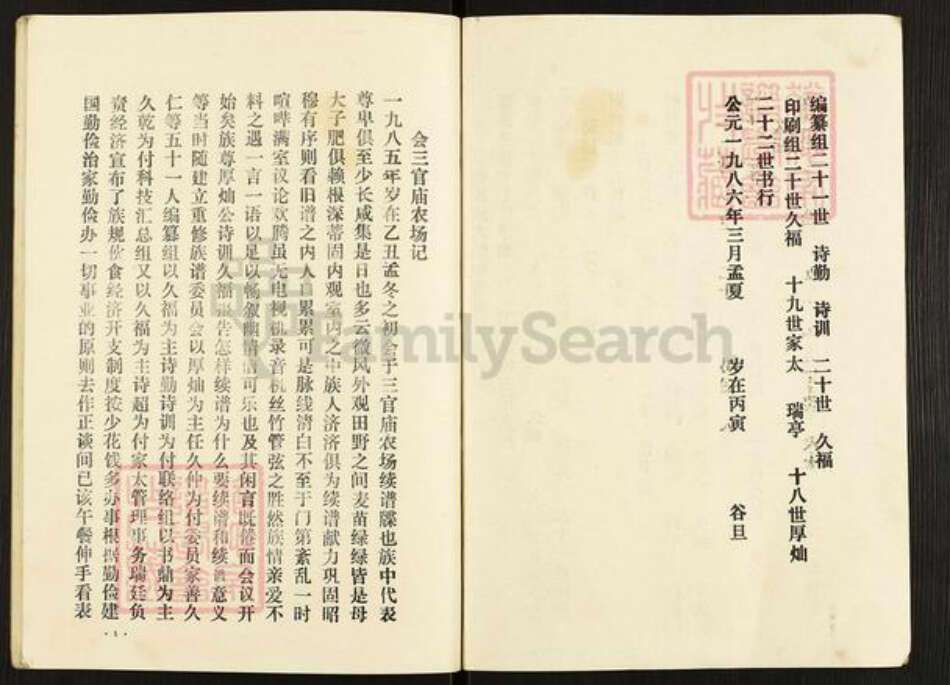 编纂组二十一世 诗勤 诗训 二十世 久福
印刷组二十世久福 十九世家太 瑞亭 十八世厚灿
二十二世书行
公元一九八六年三月孟夏 岁在丙寅 谷旦
会三官庙农场记
一九八五年岁在乙丑孟冬之初会于三官庙农场续谱牒也族中代表
尊卑俱至少长咸集是日也多云微风外观田野之间麦苗绿绿皆是母
大子肥俱赖根深蒂固内观室内之中族人济济俱为续谱献力巩固昭
穆有序则看旧谱之内人口累累可是脉线清白不至于门第紊乱一时
喧哗满室议论欢腾虽无电视机录音机丝竹管弦之胜然族情亲爱不
料之遇一言一语以足以畅叙幽情 可乐也及其闲言既倦而会议开
始矣族尊厚灿公诗训久福报告怎样续谱为什么要续谱和续谱意义
等当时随建立重修族谱委员会以厚灿为主任久仲为付委员家善久
仁等五十一人编纂组以久福为主诗勤诗训为付联络组以书鼎为主
久乾为付科技汇总组又以久福为主诗超为付家太管理事务瑞廷负
责经济宣布了族规伙食经济开支制度按少花饯多办事根据勤俭建
国勤俭治家勤俭办一切事业的原则去作正谈间已该午餐伸手看表
·1·
FamilySearch